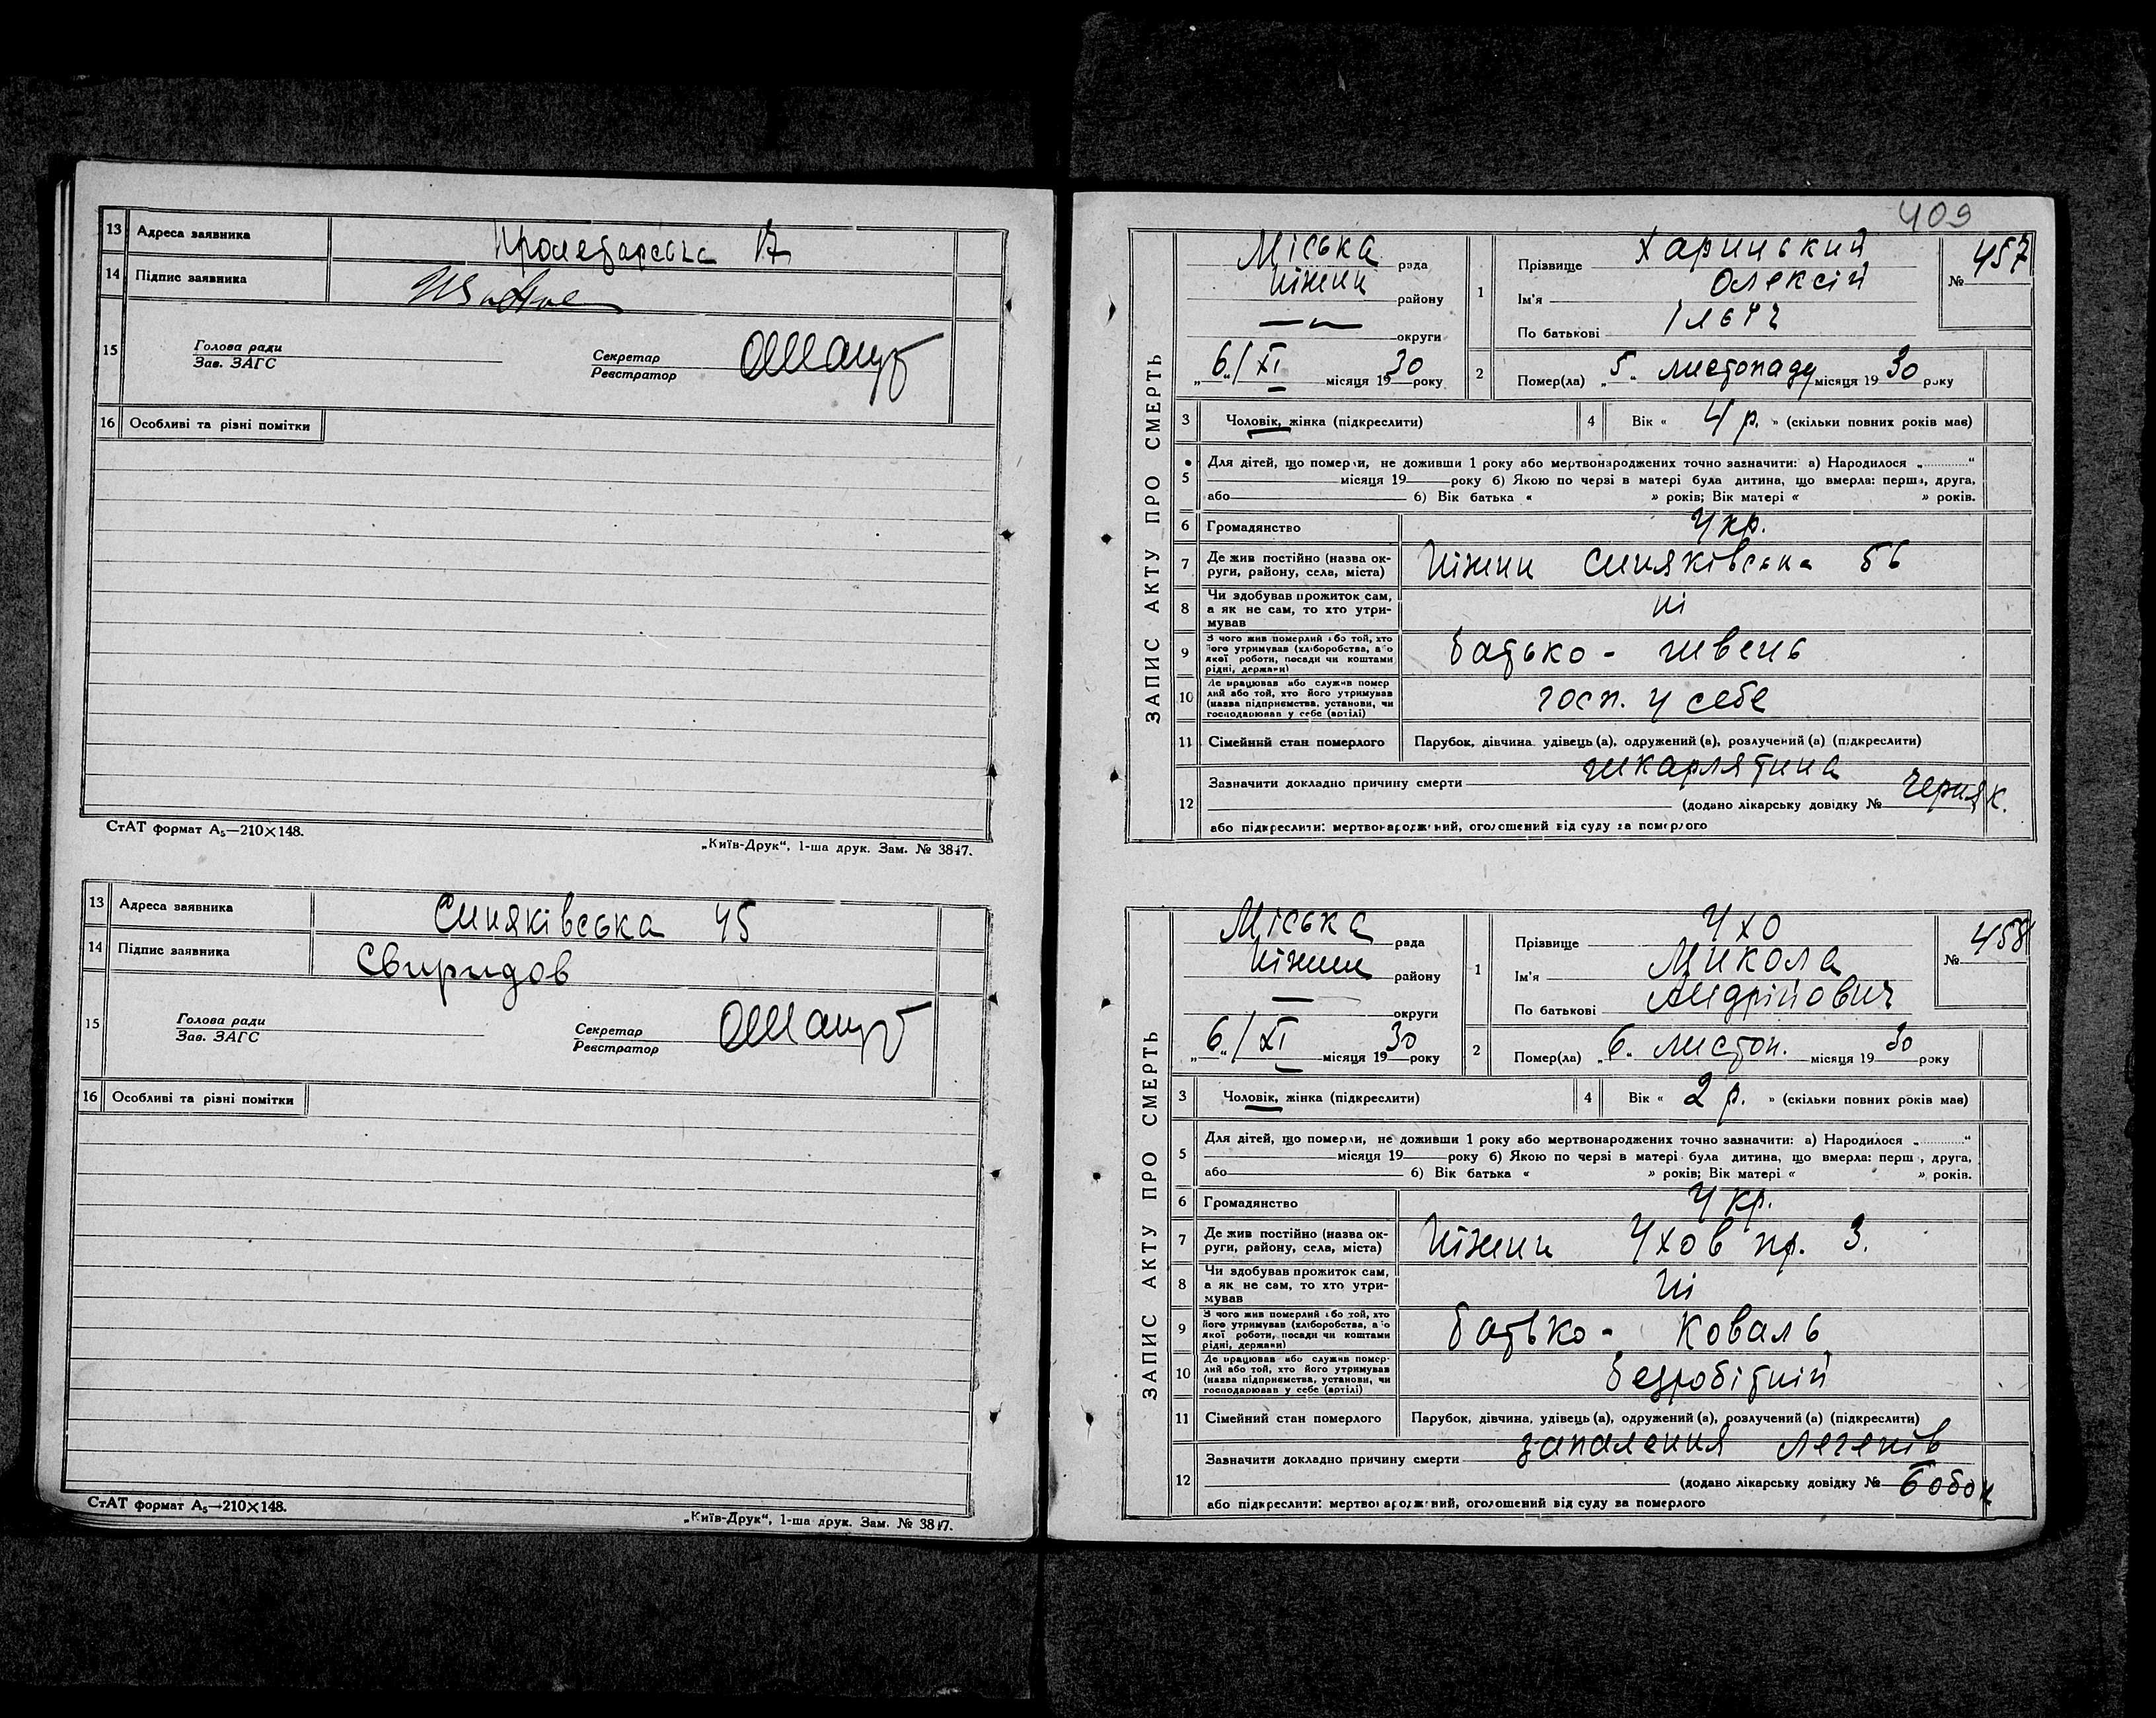 13 Адреса заявника Пролетарська 17
14 Підпис заявника
15 Голова ради
Зав. ЗАГС
Секретар
Реєстратор
16 Особливі та різні помітки
СтАТ формат А₅—210×148.
„Київ-Друк“, 1-ша друк. Зам. № 3847.
13 Адреса заявника Синяківська 45
14 Підпис заявника Свиридов
15 Голова ради
Зав. ЗАГС
Секретар
Реєстратор
16 Особливі та різні помітки
СтАТ формат А₅—210×148.
„Київ-Друк“, 1-ша друк. Зам. № 3847.
409
ЗАПИС АКТУ ПРО СМЕРТЬ
Міська рада
Ніжин району
— „ — округи
„6“/XI місяця 1930 року
1 Прізвище Харицький
Ім'я Олексій
По батькові Ільч
№ 457
2 Помер(ла) „5“ листопаду місяця 1930 року
3 Чоловік, жінка (підкреслити)
4 Вік « 4 р. » (скільки повних років має)
5 Для дітей, що померли, не доживши 1 року або мертвонароджених точно зазначити: а) Народилося „ “
місяця 19 року б) Якою по черзі в матері була дитина, що вмерла: перша, друга,
або б) Вік батька « » років; Вік матері « » років.
6 Громадянство Укр.
7 Де жив постійно (назва округи, району, села, міста) Ніжин Синяківська 56
8 Чи здобував прожиток сам, а як не сам, то хто утримував ні
9 З чого жив померлий або той, хто його утримував (хліборобства, або якої роботи, посади чи коштами рідні, держави) батько - швець
10 Де працював або служив померлий або той, хто його утримував (назва підприємства, установи, чи господарював у себе (артілі) госп. у себе
11 Сімейний стан померлого Парубок, дівчина, удівець (а), одружений (а), розлучений (а) (підкреслити)
12 Зазначити докладно причину смерти шкарлятина
(додано лікарську довідку № Черняк.
або підкреслити: мертвонароджений, оголошений від суду за померлого
ЗАПИС АКТУ ПРО СМЕРТЬ
Міська рада
Ніжин району
— округи
„6“/XI місяця 1930 року
1 Прізвище Ухо
Ім'я Микола
По батькові Андрійович
№ 458
2 Помер(ла) „6“ листоп. місяця 1930 року
3 Чоловік, жінка (підкреслити)
4 Вік « 2 р. » (скільки повних років має)
5 Для дітей, що померли, не доживши 1 року або мертвонароджених точно зазначити: а) Народилося „ “
місяця 19 року б) Якою по черзі в матері була дитина, що вмерла: перша, друга,
або б) Вік батька « » років; Вік матері « » років.
6 Громадянство Укр.
7 Де жив постійно (назва округи, району, села, міста) Ніжин Ухов пр. 3.
8 Чи здобував прожиток сам, а як не сам, то хто утримував Ні
9 З чого жив померлий або той, хто його утримував (хліборобства, або якої роботи, посади чи коштами рідні, держави) батько - коваль
10 Де працював або служив померлий або той, хто його утримував (назва підприємства, установи, чи господарював у себе (артілі) безробітній
11 Сімейний стан померлого Парубок, дівчина, удівець (а), одружений (а), розлучений (а) (підкреслити)
12 Зазначити докладно причину смерти запалення легенів
(додано лікарську довідку №
або підкреслити: мертвонароджений, оголошений від суду за померлого